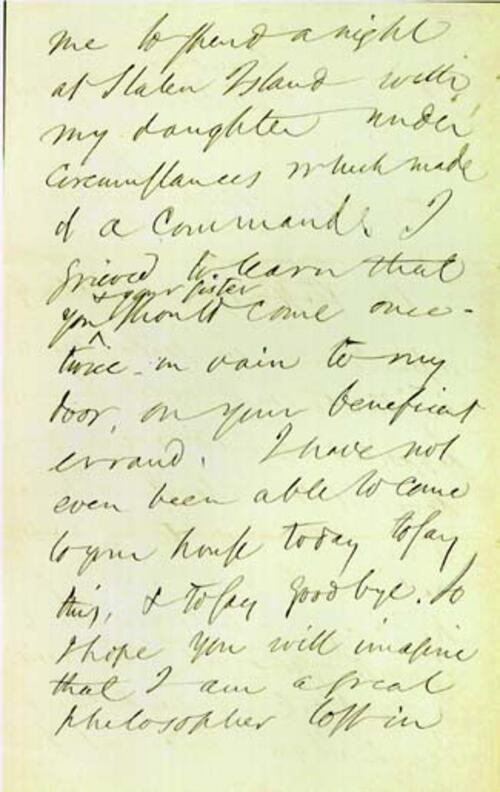 me to spend a night
at Staten Island with
my daughter under
circumstances which made
it a command. I
grieved to learn that
& your sister
you ^ should come once -
twice - in vain to my
door, on your beneficent
errand. I have not
even been able to come
to your house today to say
this, & to say goodbye. So
I hope you will imagine
that I am a great
philosopher lost in